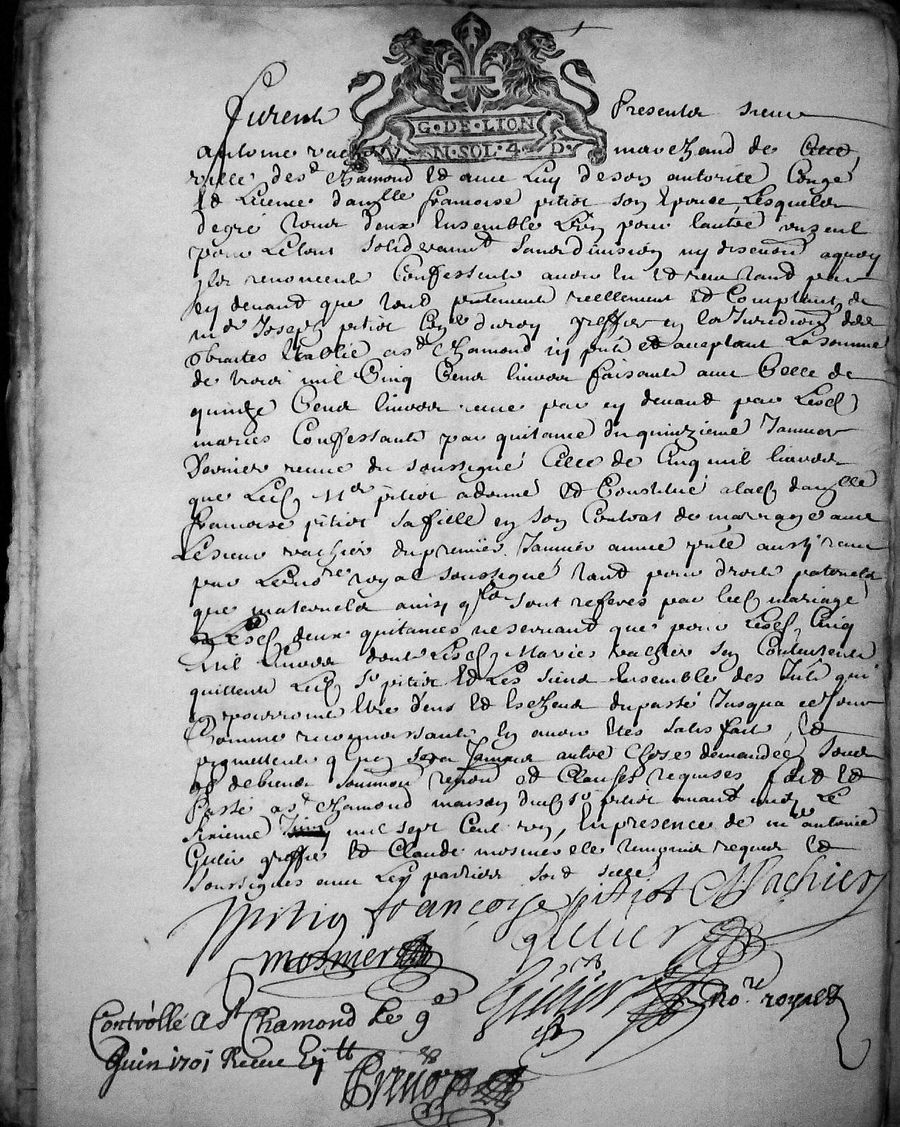 G·DE·LION
V N·SOL·4 D·
Furent Presents sieur
antoine vachier marchand de
ville de st chamond Et avec Luy de son autorité Congé
Et Licence damlle francoise pitiot son Epouse, Lesquels
de gré tous deux Ensemble Lun pour lautre un seul
pour Le tout solidairement sans division ny discution a quoy
ils renoncent Confessent avoir Eu Et receu tant par
cy devant que tout presentement reellement Et Comptant de
me Joseph pitiot greffier en la Juridiction des
traites Etablie a st chamond icy pnt Et acceptant La somme
de trois mil Cinq Cens livres faisant avec Celle de
quinze Cens livres receue par cy devant par Lesd
mariés Confessant par quitance du quinzieme Janvier
dernier receue du soussigné Celle de Cinq mil livres
que Led Sr pitiot a donné Et Constitué a lad damlle
francoise pitiot sa fille en son Contrat de mariage avec
Le sieur vachier du premier Janvier année aussi receu
par Le nore royal soussigné tant pour droits paternels
que maternels ainsy qls sont referés par led mariage
Lesd deux quitances ne servant que pour Lesd Cinq
mil Livres dont Lesd Mariés vachier se Contentent
quittent Led Sr pitiot Et Les siens Ensemble des qui
pourroient Etre deus Et Escheus du passé Jusqua ce Jour
Comme reconnoissant En avoir Etés satisfait, Et
promettent Jamais autre Chose demander sous
Et Clauses requises fait Et
Passé a st chamond maison dud Sr pitiot avant midy Le
sixieme mil sept Cent un, En presence de me antoine
Gulir greffie Et Claude mosnier
soussignés avec Les parties
pitiot françoise pitiot Vachier
mosnier
nore royal
Controllé a St Chamond Le 9e
Juin 1701 Receu